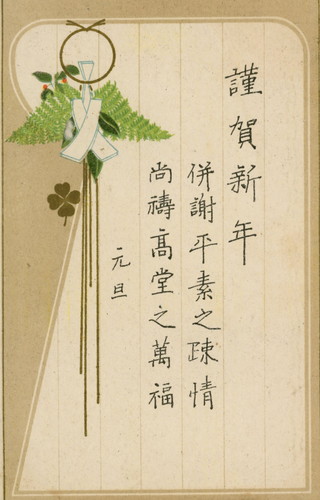 謹賀新年
併謝平素之疎情
尚禱高堂之萬福
元旦